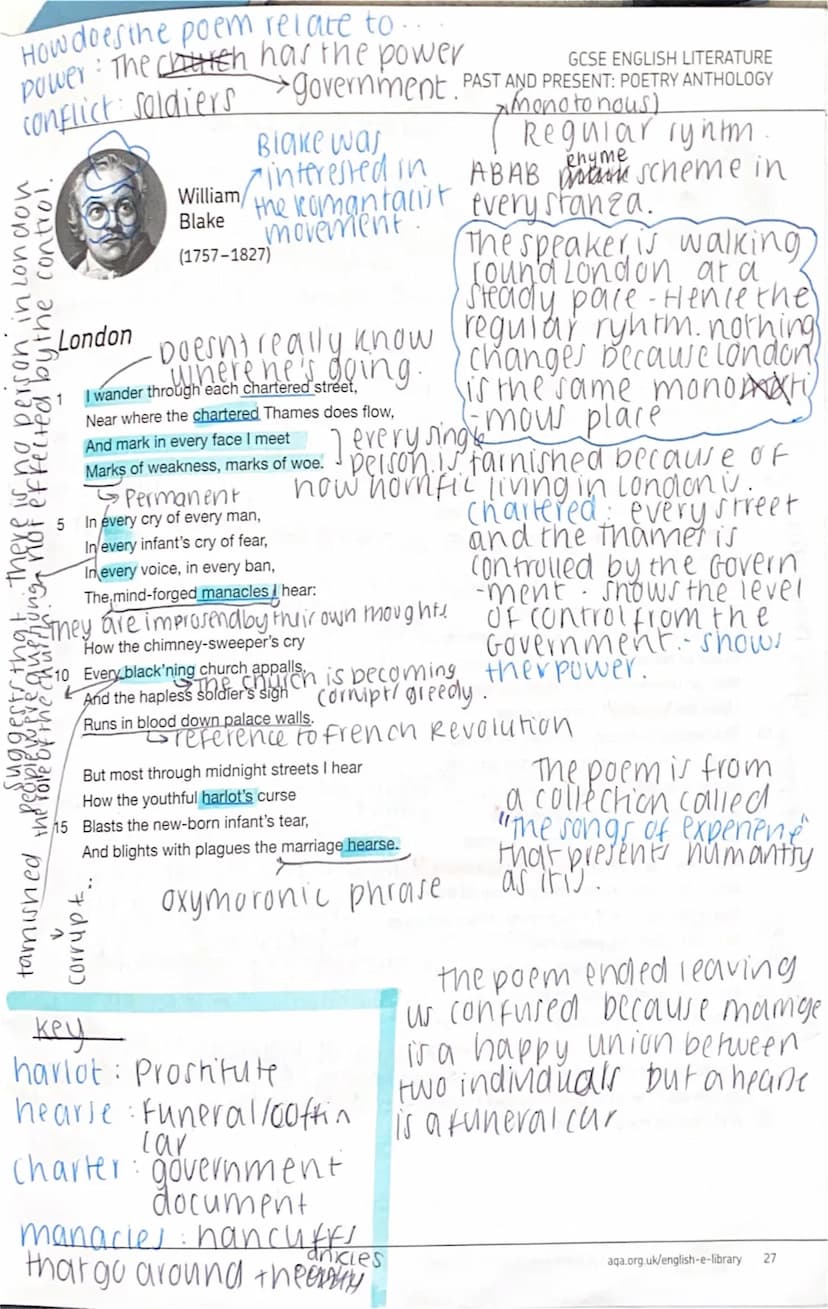 How does the poem relate to...
power: The church has the power
government.
conflict: soldiers
GCSE ENGLISH LITERATURE
PAST AND PRESENT: POETRY ANTHOLOGY
(monotonous)
Regular ryhtm.
ABAB rhyme scheme in
every stanza.
William
Blake
(1757–1827)
Blake was
interested in
the Romantacist
movement.
The speaker is walking
round London at a
steady pace - Hence the
regular ryhtm. nothing
changes because London
is the same monoti
-mous place
London
Doesnt really know
where he's going.
1 I wander through each chartered street,
Near where the chartered Thames does flow,
And mark in every face I meet
Marks of weakness, marks of woe.
every single
person is tarnished because of
how horrific living in London is.
Permanent
5 In every cry of every man,
In every infant's cry of fear,
In every voice, in every ban,
The mind-forged manacles I hear:
They are improsend by their own thoughts
chartered: every street
and the Thames is
controlled by the Govern
-ment. shows the level
of control from the
Government. - shows
their power.
How the chimney-sweeper's cry
10 Every black'ning church appalls,
The church is becoming
corrupt/greedy.
And the hapless soldier's sigh
Runs in blood down palace walls.
reference to French Revolution
But most through midnight streets I hear
How the youthful harlot's curse
15 Blasts the new-born infant's tear,
And blights with plagues the marriage hearse.
oxymoronic phrase
The poem is from
a collection called
"the songs of experiene"
that presents humantiy
as it is.
Suggests that there is no person in London
not effected by the control.
people were questioning
the role of the church.
tarnished
corrupt..
the poem ended leaving
us confused because marraige
is a happy union between
two individuals but a hearse
is a funeral car
Key
harlot: Prostitute
hearse: funeral/coffin
car
charter: government
document
manacles: hancuffs
that go around the ankles
aqa.org.uk/english-e-library 27